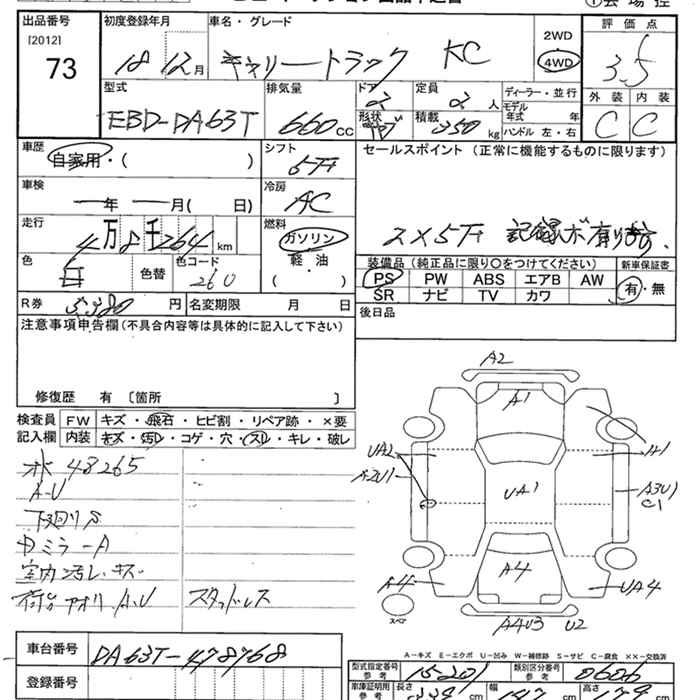 出品番号 初度登録年月 車名・グレード 評価点
[2012] 73 18 12月 キャリートラック KC 2WD 4WD 3.5
外装 内装
C C
型式 排気量 ドア 定員 ディーラー・並行
EBD-DA63T 660cc 2 2人 モデル年式 年
形状 積載 350kg ハンドル 左・右
車歴 シフト セールスポイント (正常に機能するものに限ります)
自家用・( ) 5F
車検 冷房
年 月( 日) AC
走行 燃料
4万8千264km ガソリン 2×5F
色 色替 色コード 260 軽・油 ( )
装備品 (純正品に限り○をつけてください) 新車保証書
PS PW ABS エアB AW 有・無
SR ナビ TV カワ
R券 5380円 名変期限 月 日
後日品
注意事項申告欄(不具合内容等は具体的に記入して下さい)
修復歴 有 〔箇所 〕
検査員 FW キズ・飛石・ヒビ割・リペア跡・×要
記入欄 内装 キズ・汚レ・コゲ・穴・スレ・キレ・破レ
水 48265
A-U
下廻りS
中ミラーA
室内汚レ・キズ
荷台アオリ A.U スタッドレス
A2
A1
UA2 A2U1 UA1 A3U1 C1
A4 A4 UA4
スペア A4U3 U2
車台番号 DA63T-478768
登録番号
A-キズ E-エクボ U-凹み W-補修跡 S-サビ C-腐食 ××-交換済
型式指定番号 参考 15201 類別区分番号 参考 0606
車庫証明用 参考 長さ 幅 高さ